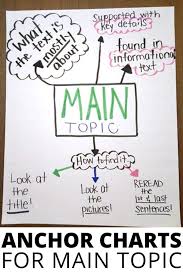 What
the text is
mostly
about
Supported with
key details
found in
informational
text
MAIN
TOPIC
How to find it
Look at
the
title!
Look at
the
pictures!
REREAD
the
1st & last
Sentences!
ANCHOR CHARTS
FOR MAIN TOPIC